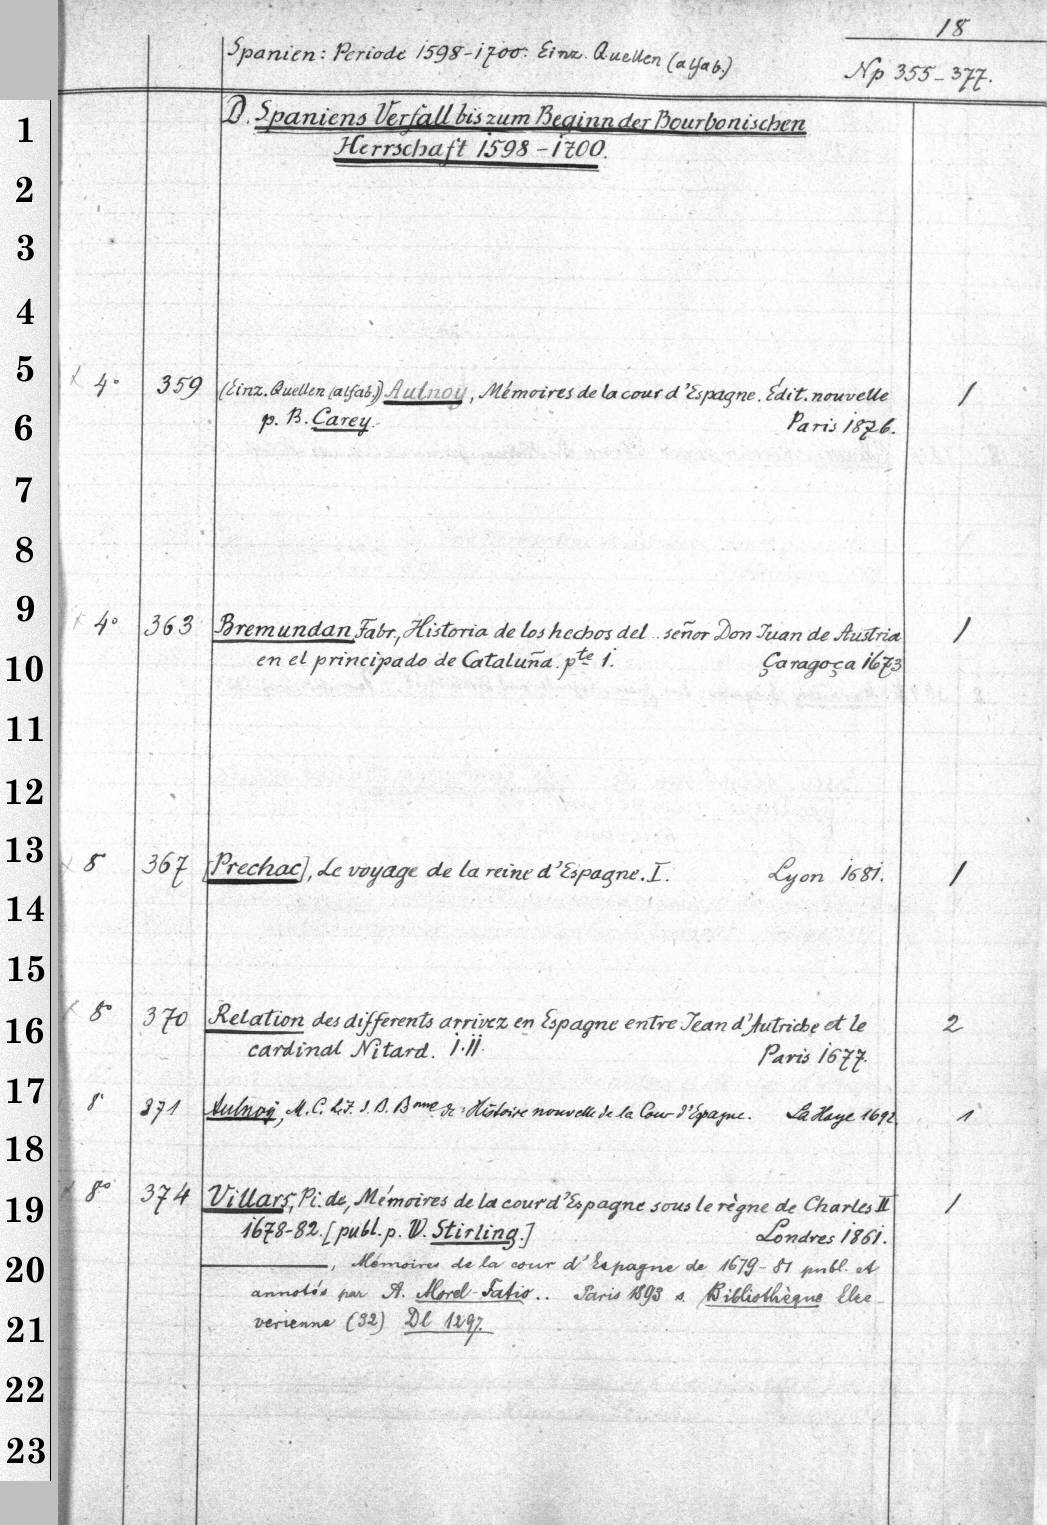 18
Spanien: Periode 1598-1700. Einz. Quellen (alfab.)
Np 355-377.
D. Spaniens Verfall bis zum Beginn der Bourbonischen
Herrschaft 1598-1700.
1
2
3
4
5
4° 359 (Einz. Quellen (alfab.)) Aulnoy, Mémoires de la cour d'Espagne. Édit. nouvelle 1
6
p. B. Carey. Paris 1876.
7
8
9
4° 363 Bremundan, Fabr., Historia de los hechos del .. señor Don Juan de Austria 1
10
en el principado de Cataluña. pte 1. Çaragoça 1673
11
12
13
8 367 [Prechac], Le voyage de la reine d'Espagne. I. Lyon 1681. 1
14
15
16
8° 370 Relation des differents arrivez en Espagne entre Jean d'Autriche et le 2
cardinal Nitard. I.II. Paris 1677.
17
8° 371 Aulnoy, M. C. L. J. d. B. Bnne de: Histoire nouvelle de la Cour d'Epagne. La Haye 1692. 1
18
8° 374 Villars, Pi. de, Mémoires de la cour d'Espagne sous le règne de Charles II 1
19
1678-82. [publ. p. W. Stirling.] Londres 1861.
20
, Mémoires de la cour d'Espagne de 1679-81 publ. et
annotés par A. Morel-Fatio .. Paris 1893 s. Bibliothèque Elze-
21
verienne (32) Dl 1297.
22
23